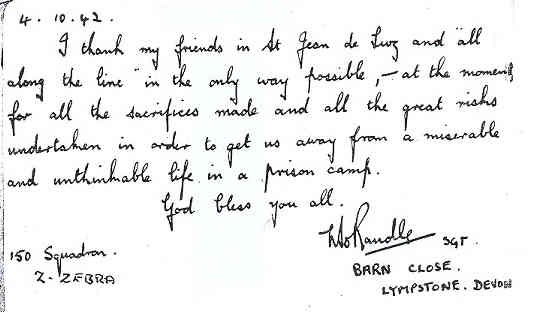 4. 10. 42.
I thank my friends in St Jean de Luz and "all
along the line" in the only way possible, – at the moment,
for all the sacrifices made and all the great risks
undertaken in order to get us away from a miserable
and unthinkable life in a prison camp.
God bless you all.
Randle SGT.
150 Squadron.
BARN CLOSE.
Z - ZEBRA
LYMPSTONE. DEVON